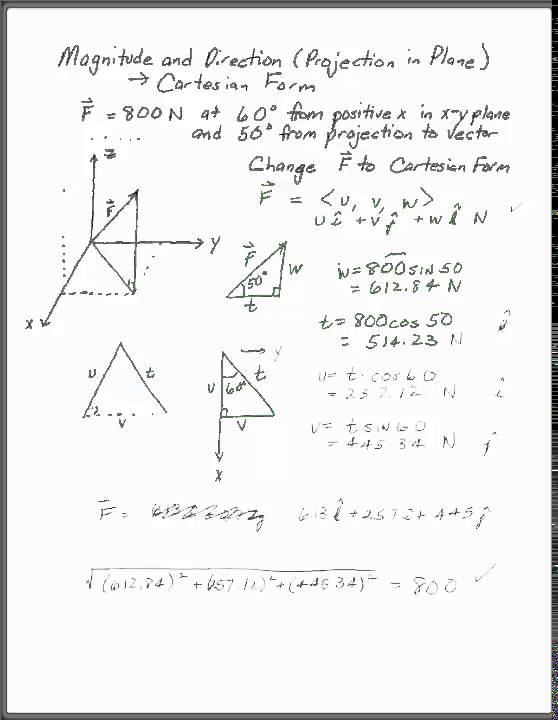 Magnitude and Direction (Projection in Plane)
→ Cartesian Form
F⃗ = 800 N at 60° from positive x in x-y plane
and 50° from projection to vector
Change F⃗ to Cartesian Form
z
F⃗
y
x
F⃗ = <u, v, w>
u î + v ĵ + w k̂ N ✓
F⃗
w
50°
t
w = 800 sin 50
= 612.84 N
t = 800 cos 50
= 514.23 N
u
t
v
y
u
60°
t
v
x
u = t · cos 60
= 257.12 N î
v = t sin 60
= 445.34 N ĵ
F⃗ = 613 k̂ + 257 î + 445 ĵ
√(612.84)² + (257.12)² + (445.34)² = 800 ✓